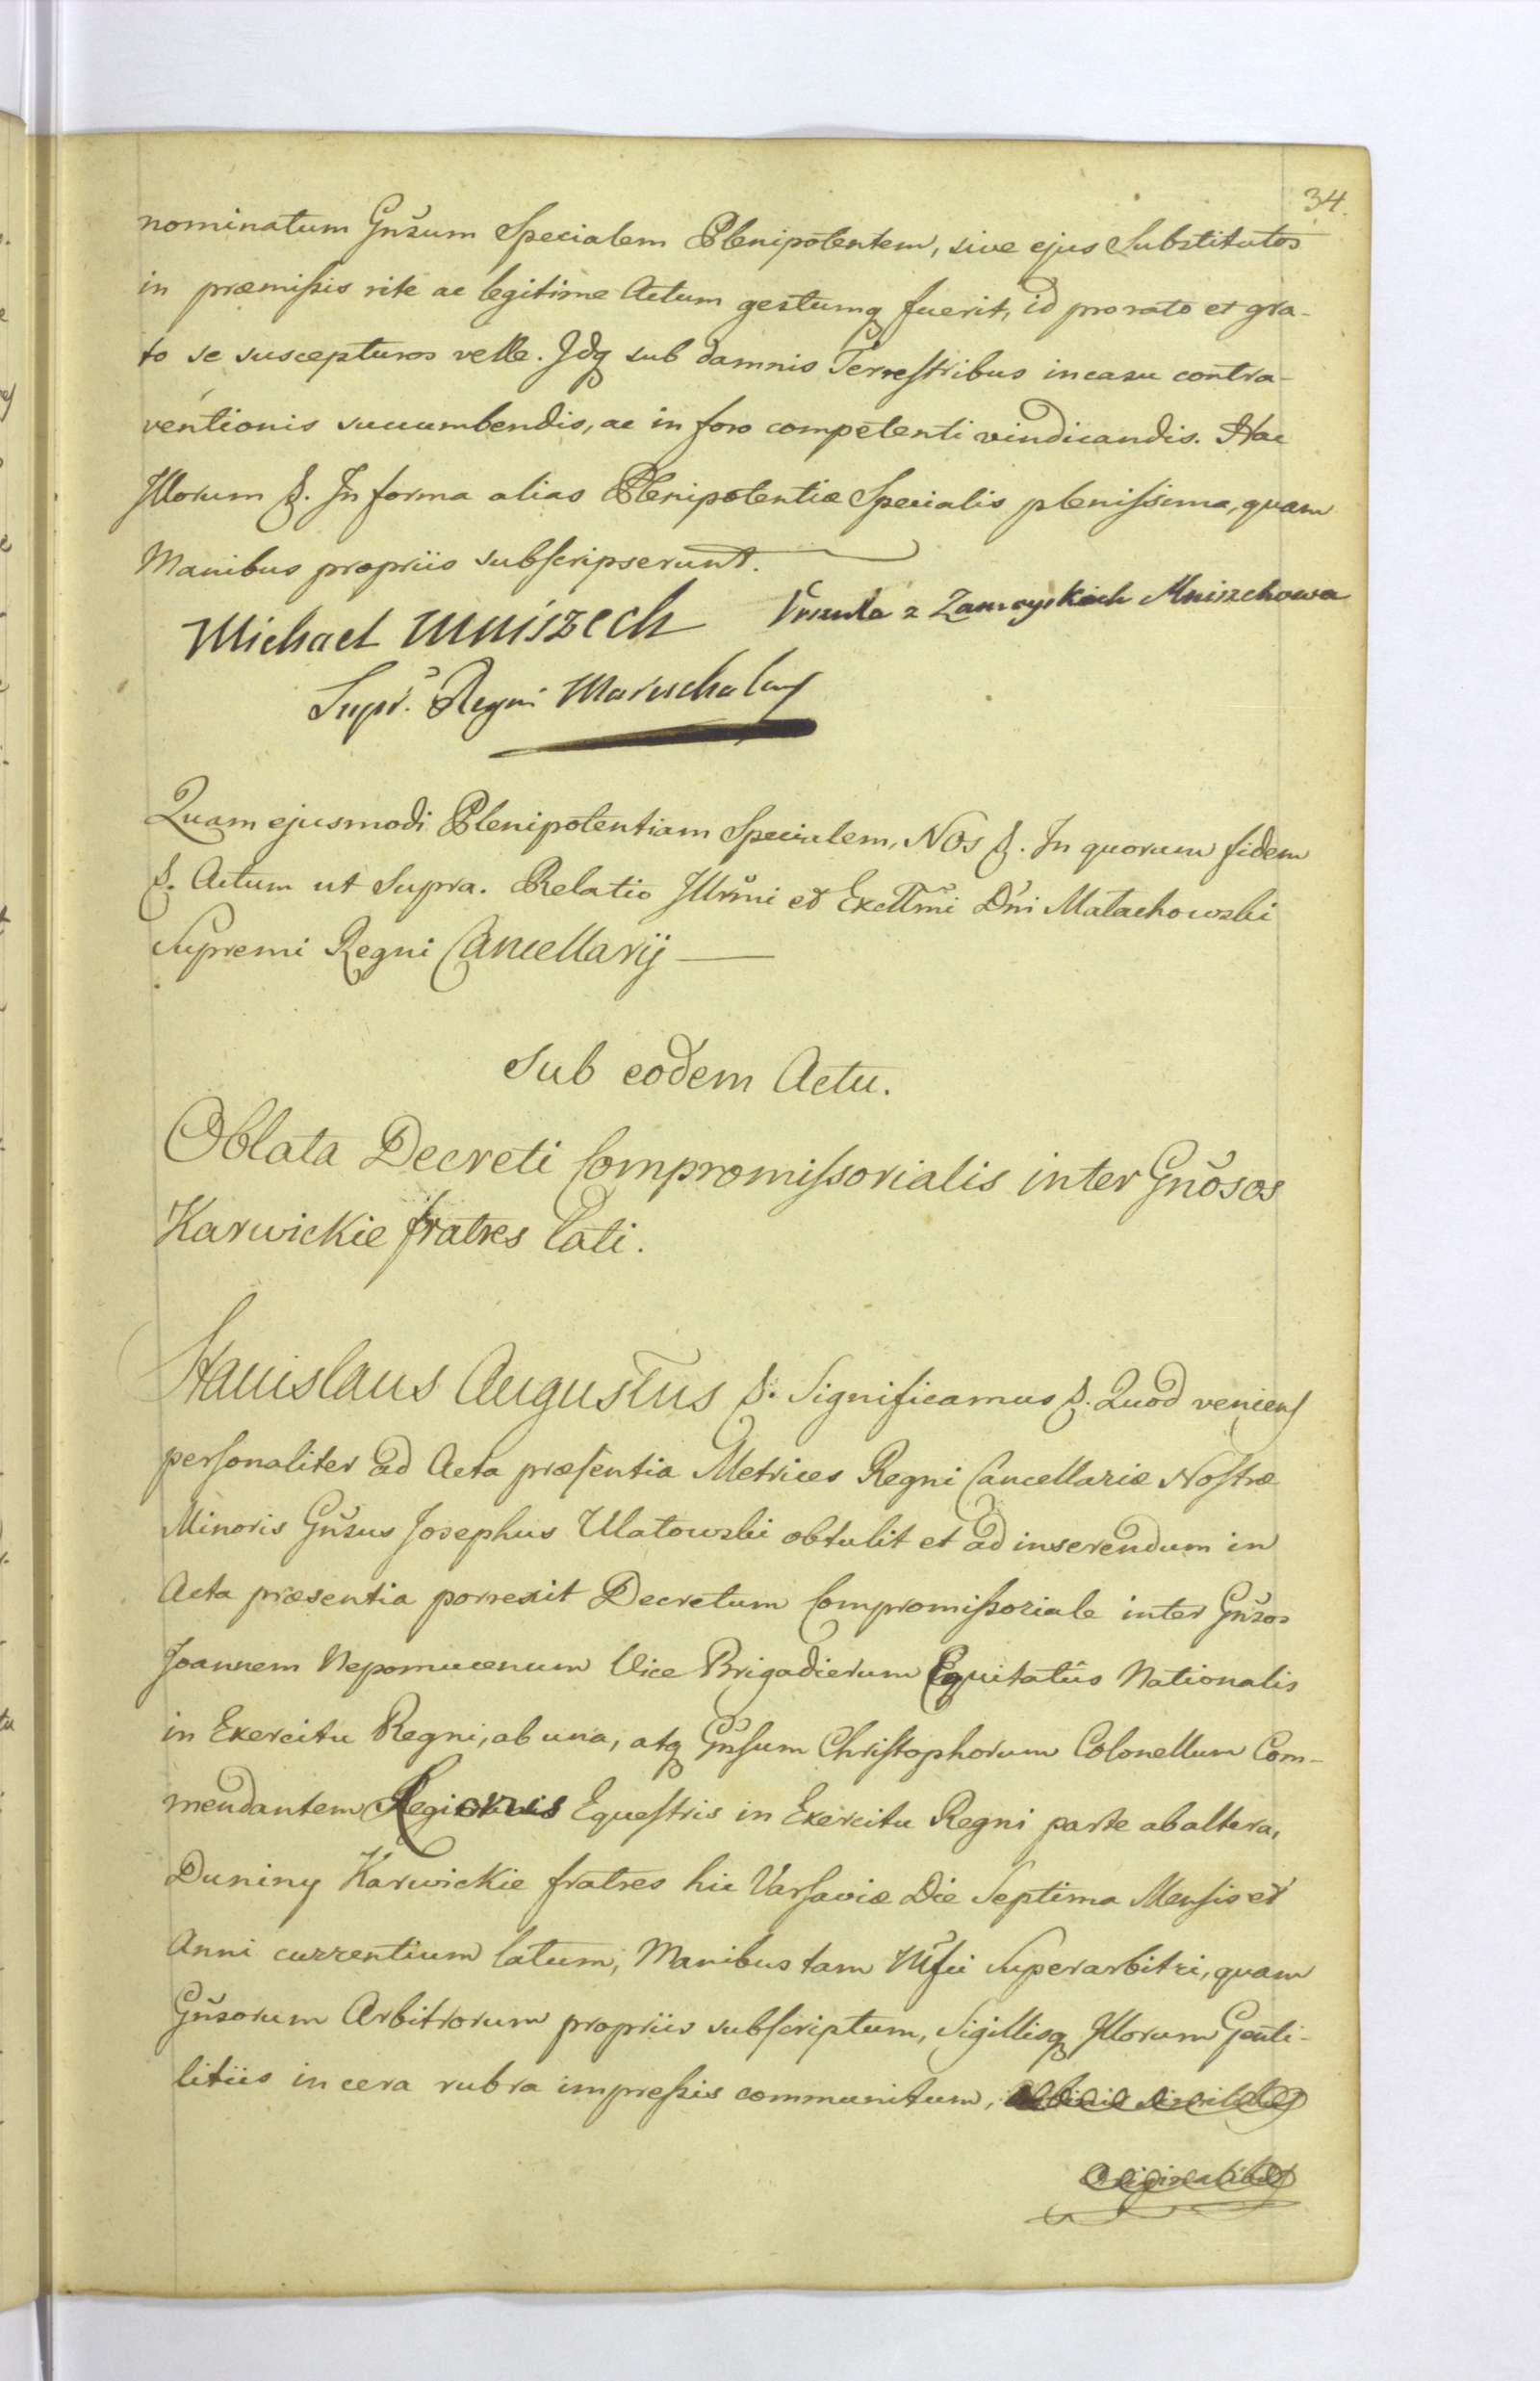 34.
nominatum Gnŭsum Specialem Plenipotentem, sive ejus Substitutos
in præmißis rite ac legitime Actum gestumq fuerit, id pro rato et gra-
to se suscepturos velle. Jdq sub damnis Terrestribus in casu contra-
ventionis succumbendis, ac in foro competenti vindicandis. Hac
Jllorum &. Jn forma alias Plenipotentiæ Specialis plenißima, quam
Manibus propriis subscripserunt.
Michael Mniszech Urszula z Zamoyskich Mniszchowa
Supr. Regni Mareschalcus
Quam ejusmodi Plenipotentiam Specialem, Nos &. Jn quorum fidem
&. Actum ut Supra. Relatio Jllrmi et Excllmi Dni Małachowski
Supremi Regni Cancellarij
Sub eodem Actu.
Oblata Decreti Compromissorialis inter Gnosos
Karwickie fratres lati.
Stanislaus Augustus &. Significamus &. Quod veniens
personaliter ad Acta præsentia Metrices Regni Cancellariæ Nostræ
Minoris Gnsus Josephus Ulatowski obtulit et ad inserendum in
Acta præsentia porrexit Decretum Compromißoriale inter Gnsos
Joannem Nepomucenum Vice Brigadierum Equitatûs Nationalis
in Exercitu Regni, ab una, atq Gnsum Christophorum Colonellum Com-
mendantem Regionis Equestris in Exercitu Regni parte ab altera,
Duniny Karwickie fratres hic Varsaviæ Die Septima Mensis et
Anni currentium latum, Manibus tam Mfci Superarbitri, quam
Gnsorum Arbitrorum propriis subscriptum, Sigillisq Jllorum Genti-
litiis in cera rubra impreßis communitum,
originalibus